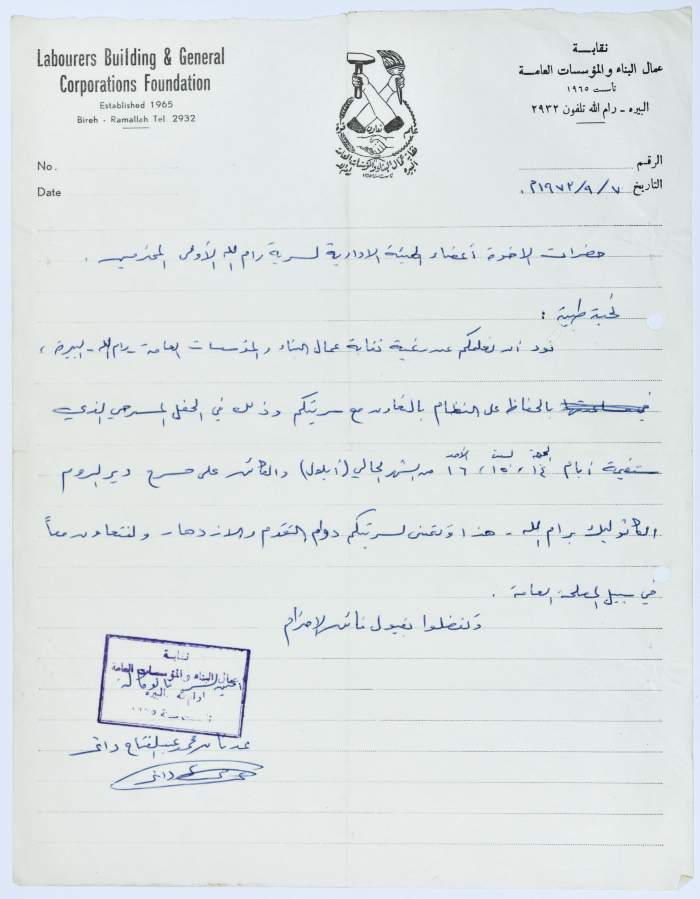 Labourers Building & General
Corporations Foundation
Established 1965
Bireh - Ramallah Tel. 2932
نقابــة
عمال البناء والمؤسسات العامة
تأسست ١٩٦٥
البيره - رام الله تلفون ٢٩٣٢
تعاون
نقابة عمال البناء والمؤسسات العامة
No.
Date
الرقم
التاريخ ٧/٩/١٩٧٣م.
حضرات الاخوة أعضاء الهيئة الادارية لسرية رام الله الأولى المحترمين .
تحية طيبة :
نود أن نعلمكم عن رغبة نقابة عمال البناء والمؤسسات العامة - رام الله - البيرة ،
بالحفاظ على النظام بالتعاون مع سريتكم وذلك في الحفل المسرحي الذي
الجمعة السبت الأحد
ستقيمه أيام ١٤، ١٥، ١٦ من الشهر الحالي (أيلول) والكائن على مسرح دير الروم
الكاثوليك برام الله - هذا ونتمنى لسريتكم دوام التقدم والازدهار ولنتعاون معاً
في سبيل المصلحة العامة .
وتفضلوا بقبول فائق الاحترام
نقابــة
عمال البناء والمؤسسات العامة
رام الله البيره
تأسست سنة ١٩٦٥
أمين السر بالوكالة
عدنان محمد عبد الفتاح داغر